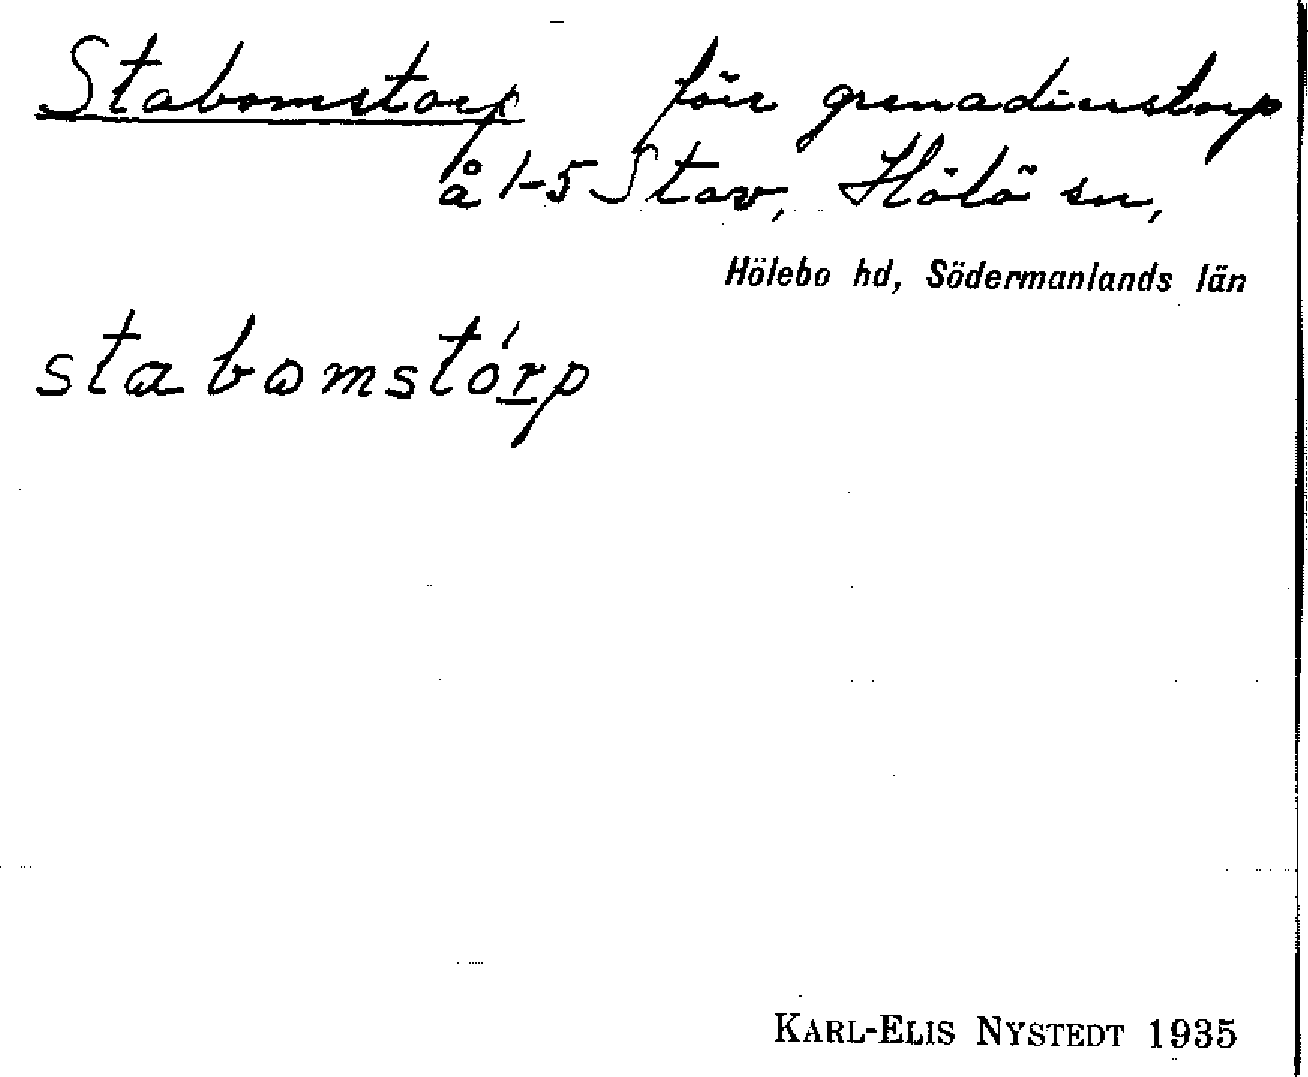 Stabomstorp förr grenadierstorp
å 1-5 Stav, Hölö sn,
Hölebo hd, Södermanlands län
stabomstórp
KARL-ELIS NYSTEDT 1935